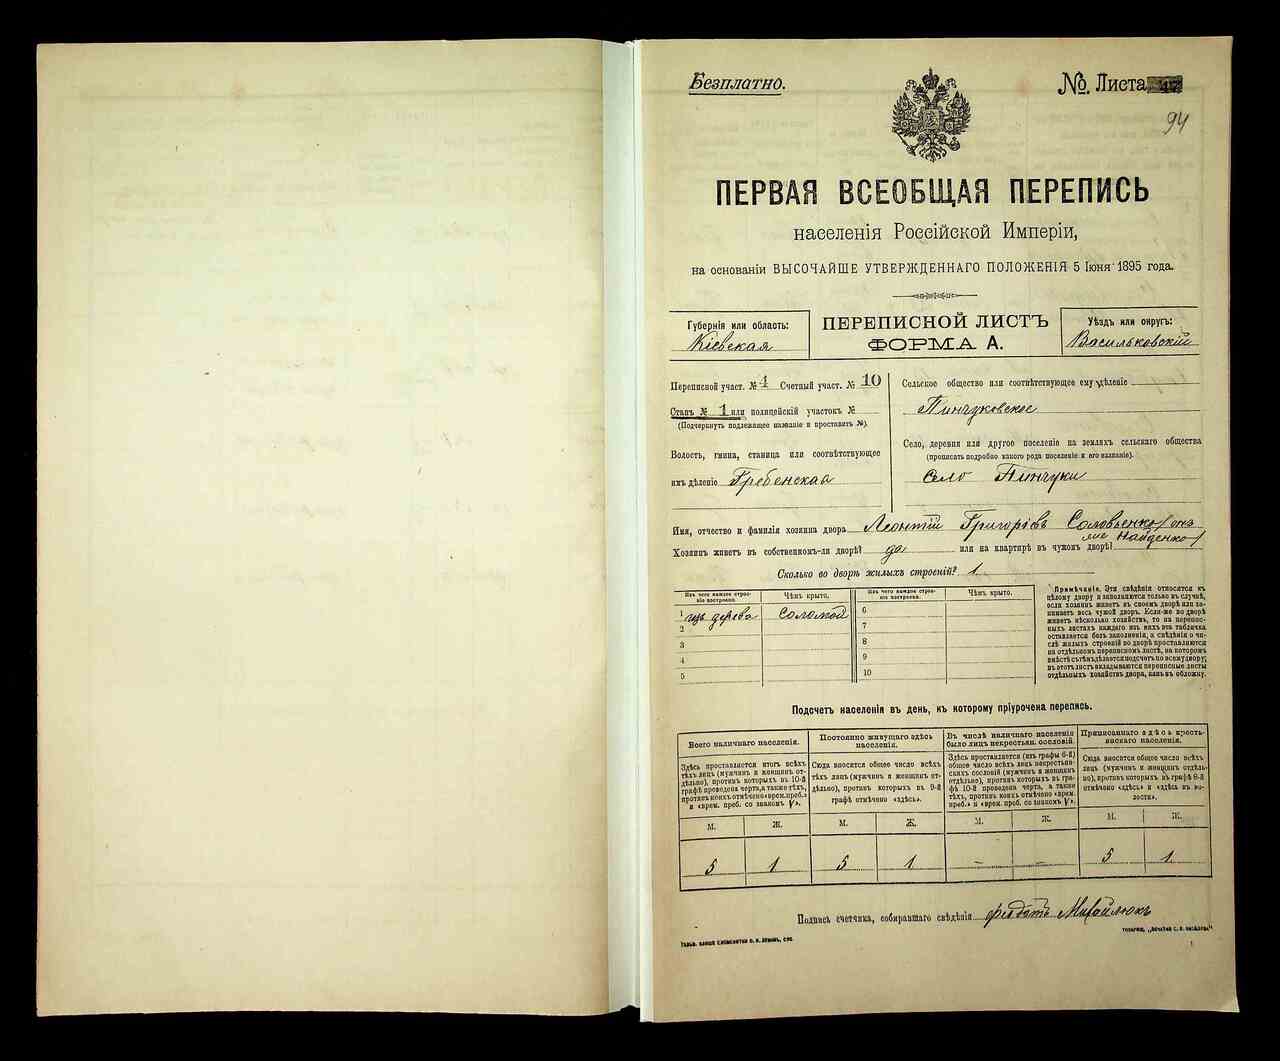 Безплатно.
№. Листа
94
ПЕРВАЯ ВСЕОБЩАЯ ПЕРЕПИСЬ
населенія Россійской Имперіи,
на основаніи ВЫСОЧАЙШЕ УТВЕРЖДЕННАГО ПОЛОЖЕНІЯ 5 Іюня 1895 года.
Губернія или область:
Кіевская
ПЕРЕПИСНОЙ ЛИСТЪ
ФОРМА А.
Уѣздъ или округъ:
Васильковскій
Переписной участ. № 1 Счетный участ. № 10
Станъ № 1 или полицейскій участокъ №
(Подчеркнуть подлежащее названіе и проставить №).
Волость, гмина, станица или соотвѣтствующее
имъ дѣленіе Гребенская
Сельское общество или соотвѣтствующее ему дѣленіе
Пинчуковское
Село, деревня или другое поселеніе на земляхъ сельскаго общества
(прописать подробно какого рода поселеніе и его названіе).
село Пинчуки
Имя, отчество и фамилія хозяина двора Леонтій Григоріевъ Соловьенко (онъ
же Найденко)
Хозяинъ живетъ въ собственномъ-ли дворѣ? да или на квартирѣ въ чужомъ дворѣ?
Сколько во дворѣ жилыхъ строеній? 1
Изъ чего каждое строеніе построено.
Чѣмъ крыто.
Изъ чего каждое строеніе построено.
Чѣмъ крыто.
1 изъ дерева соломой
2
3
4
5
6
7
8
9
10
Примѣчаніе. Эти свѣдѣнія относятся къ
цѣлому двору и заполняются только въ случаѣ,
если хозяинъ живетъ въ своемъ дворѣ или занимаетъ
весь чужой дворъ. Если-же во дворѣ
живетъ нѣсколько хозяйствъ, то на переписныхъ
листахъ каждаго изъ нихъ эта табличка
оставляется безъ заполненія, а свѣдѣнія о числѣ
жилыхъ строеній во дворѣ проставляются
на отдѣльномъ переписномъ листѣ, на которомъ
вмѣстѣ съ тѣмъ дѣлается подсчетъ по всему двору;
въ этотъ листъ вкладываются переписные листы
отдѣльныхъ хозяйствъ двора, какъ въ обложку.
Подсчетъ населенія въ день, къ которому пріурочена перепись.
Всего наличнаго населенія.
Здѣсь проставляется итогъ всѣхъ
тѣхъ лицъ (мужчинъ и женщинъ отдѣльно),
противъ которыхъ въ 10-й
графѣ проведена черта, а также тѣхъ,
противъ коихъ отмѣчено «врем. преб.»
и «врем. преб. со знакомъ V».
Постоянно живущаго здѣсь
населенія.
Сюда вносится общее число всѣхъ
тѣхъ лицъ (мужчинъ и женщинъ отдѣльно),
противъ которыхъ въ 9-й
графѣ отмѣчено «здѣсь».
Въ числѣ наличнаго населенія
было лицъ некрестьян. сословій.
Здѣсь проставляется (изъ графы 6-й)
общее число всѣхъ лицъ некрестьянскихъ
сословій (мужчинъ и женщинъ
отдѣльно), противъ которыхъ въ графѣ
10-й проведена черта, а также
тѣхъ, противъ коихъ отмѣчено «врем.
преб.» и «врем. преб. со знакомъ V».
Приписаннаго здѣсь крестьянскаго
населенія.
Сюда вносится общее число всѣхъ
лицъ (мужчинъ и женщинъ отдѣльно),
противъ которыхъ въ графѣ 8-й
отмѣчено «здѣсь» и «здѣсь въ волости».
М. Ж. М. Ж. М. Ж. М. Ж.
5 1 5 1 – – 5 1
Подпись счетчика, собиравшаго свѣдѣнія Феодотъ Михайлюкъ